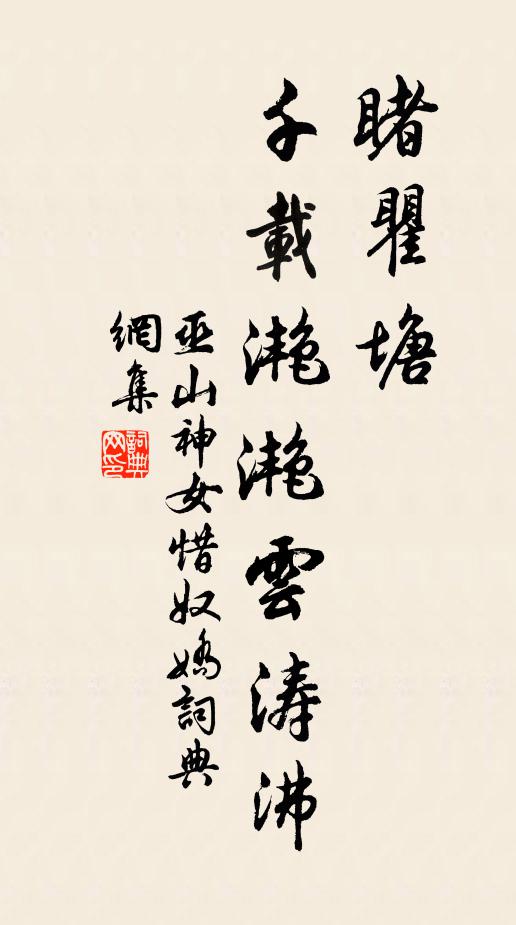 睹瞿塘
千載灧灧雲濤沸
巫山神女惜奴嬌詞典
網集
詞典
网印